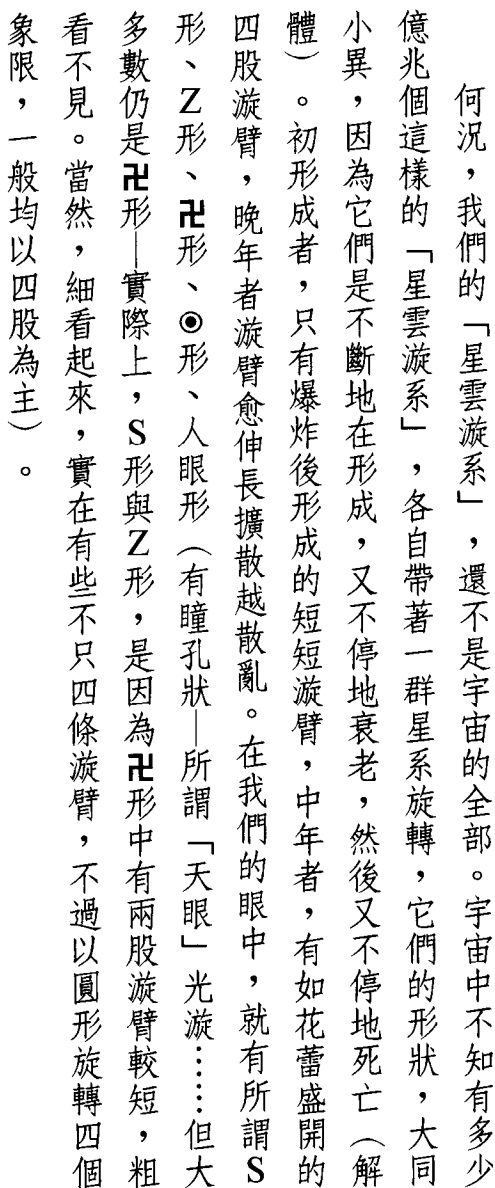 何況，我們的「星雲漩系」，還不是宇宙的全部。宇宙中不知有多少
億兆個這樣的「星雲漩系」，各自帶著一群星系旋轉，它們的形狀，大同
小異，因為它們是不斷地在形成，又不停地衰老，然後又不停地死亡（解
體）。初形成者，只有爆炸後形成的短短漩臂，中年者，有如花蕾盛開的
四股漩臂，晚年者漩臂愈伸長擴散越散亂。在我們的眼中，就有所謂S
形、Z形、卍形、◉形、人眼形（有瞳孔狀—所謂「天眼」光漩……但大
多數仍是卍形—實際上，S形與Z形，是因為卍形中有兩股漩臂較短，粗
看不見。當然，細看起來，實在有些不只四條漩臂，不過以圓形旋轉四個
象限，一般均以四股為主）。